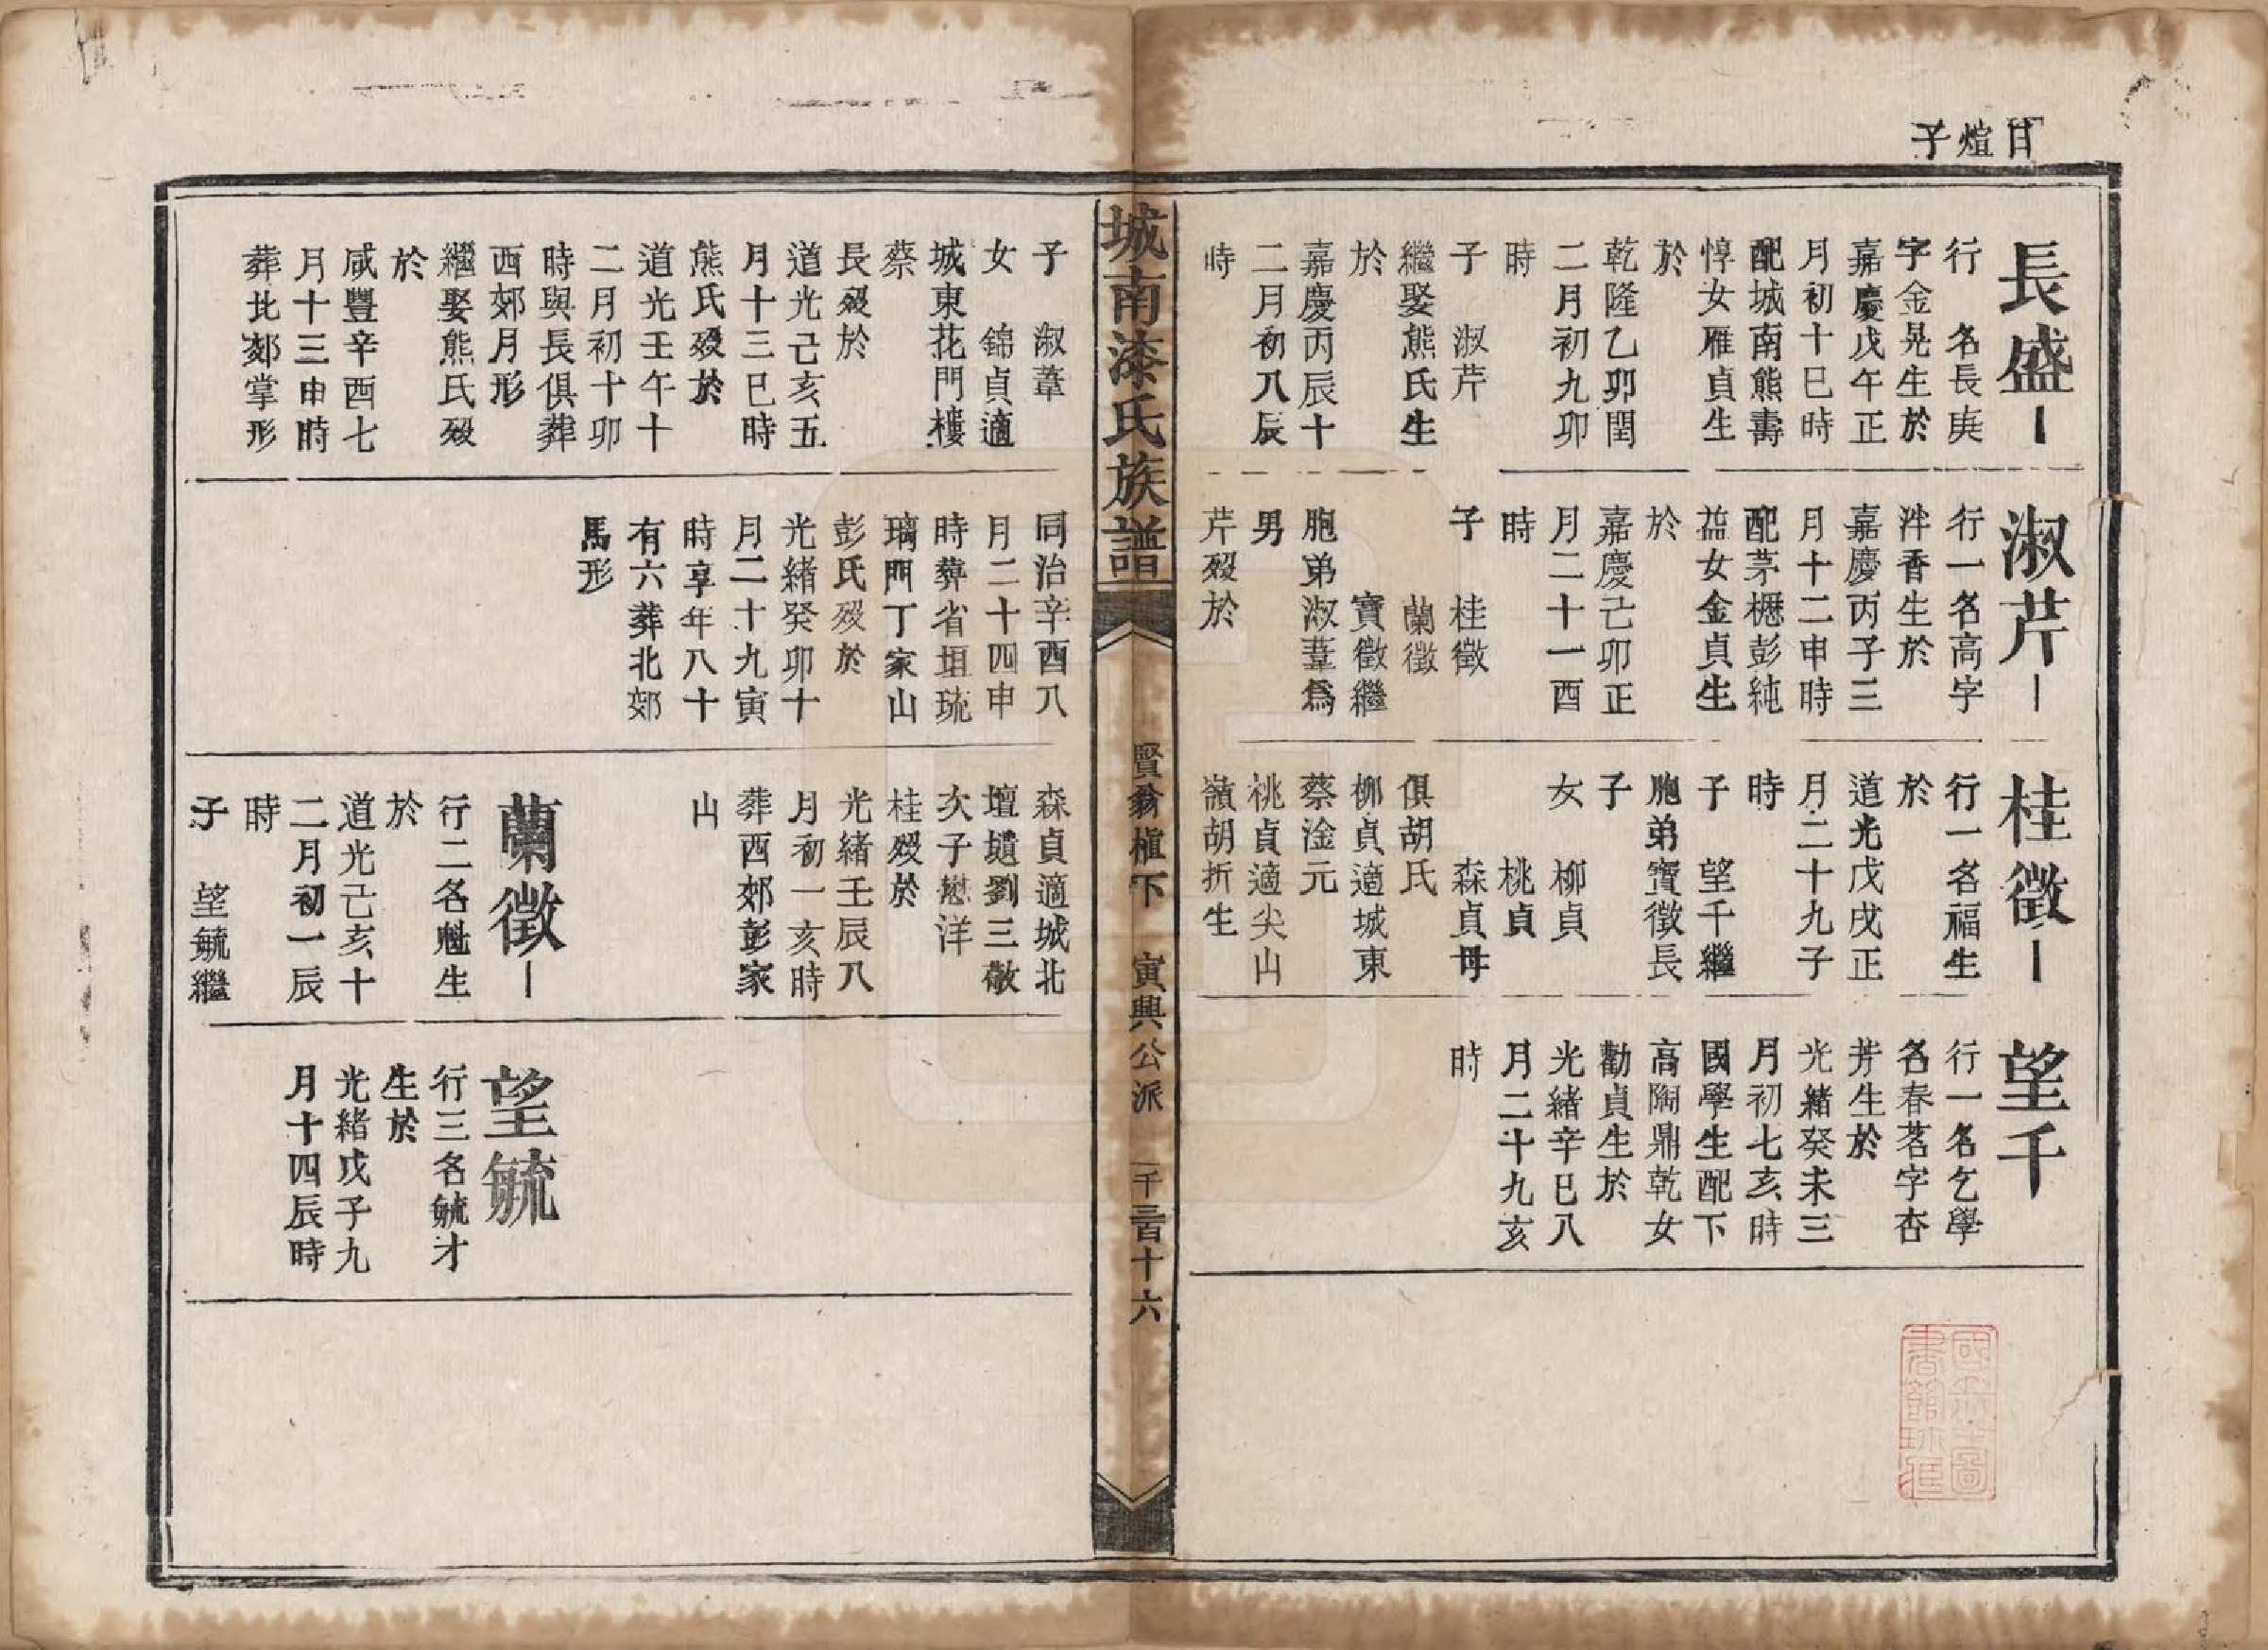 日煊子
長盛
行　名長庚
字金晃生於
嘉慶戊午正
月初十巳時
配城南熊壽
惇女雁貞生
於
乾隆乙卯閏
二月初九卯
時
子　淑芹
繼娶熊氏生
於
嘉慶丙辰十
二月初八辰
時
淑芹
行一名高字
泮香生於
嘉慶丙子三
月十二申時
配茅櫪彭純
益女金貞生
於
嘉慶己卯正
月二十一酉
時
子　桂徵
蘭徵
寶徵繼
胞弟淑葦為
男
芹歿於
桂徵
行一名福生
於
道光戊戌正
月二十九子
時
子　望千繼
胞弟寶徵長
子
女　柳貞
桃貞
森貞母
俱胡氏
柳貞適城東
蔡淦元
桃貞適尖山
嶺胡折生
望千
行一名乞學
名春茗字杏
芳生於
光緒癸未三
月初七亥時
國學生配下
高陶鼎乾女
勸貞生於
光緒辛巳八
月二十九亥
時
城南漆氏族譜
賢翁植下　寅興公派　一千三百十六
子　淑葦
女　錦貞適
城東花門樓
蔡
長歿於
道光己亥五
月十三巳時
熊氏歿於
道光壬午十
二月初十卯
時與長俱葬
西郊月形
繼娶熊氏歿
於
咸豐辛酉七
月十三申時
葬北郊掌形
同治辛酉八
月二十四申
時葬省垣琉
璃門丁家山
彭氏歿於
光緒癸卯十
月二十九寅
時享年八十
有六葬北郊
馬形
森貞適城北
壇壝劉三敬
次子懋洋
桂歿於
光緒壬辰八
月初一亥時
葬西郊彭家
山
蘭徵
行二名魁生
於
道光己亥十
二月初一辰
時
子　望毓繼
望毓
行三名毓才
生於
光緒戊子九
月十四辰時